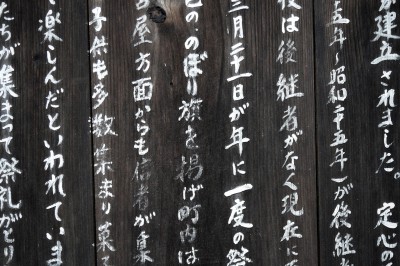 が建立されました。定心の
五年～昭和二十五年)が後継者
後は後継者がなく現在に
三月二十一日が年に一度の祭
色の・のぼり旗を揚げ町内は
古屋方面からも信者が集
子供も多数集まり菓子
楽しんだといわれていま
たちが集まって祭礼がとり